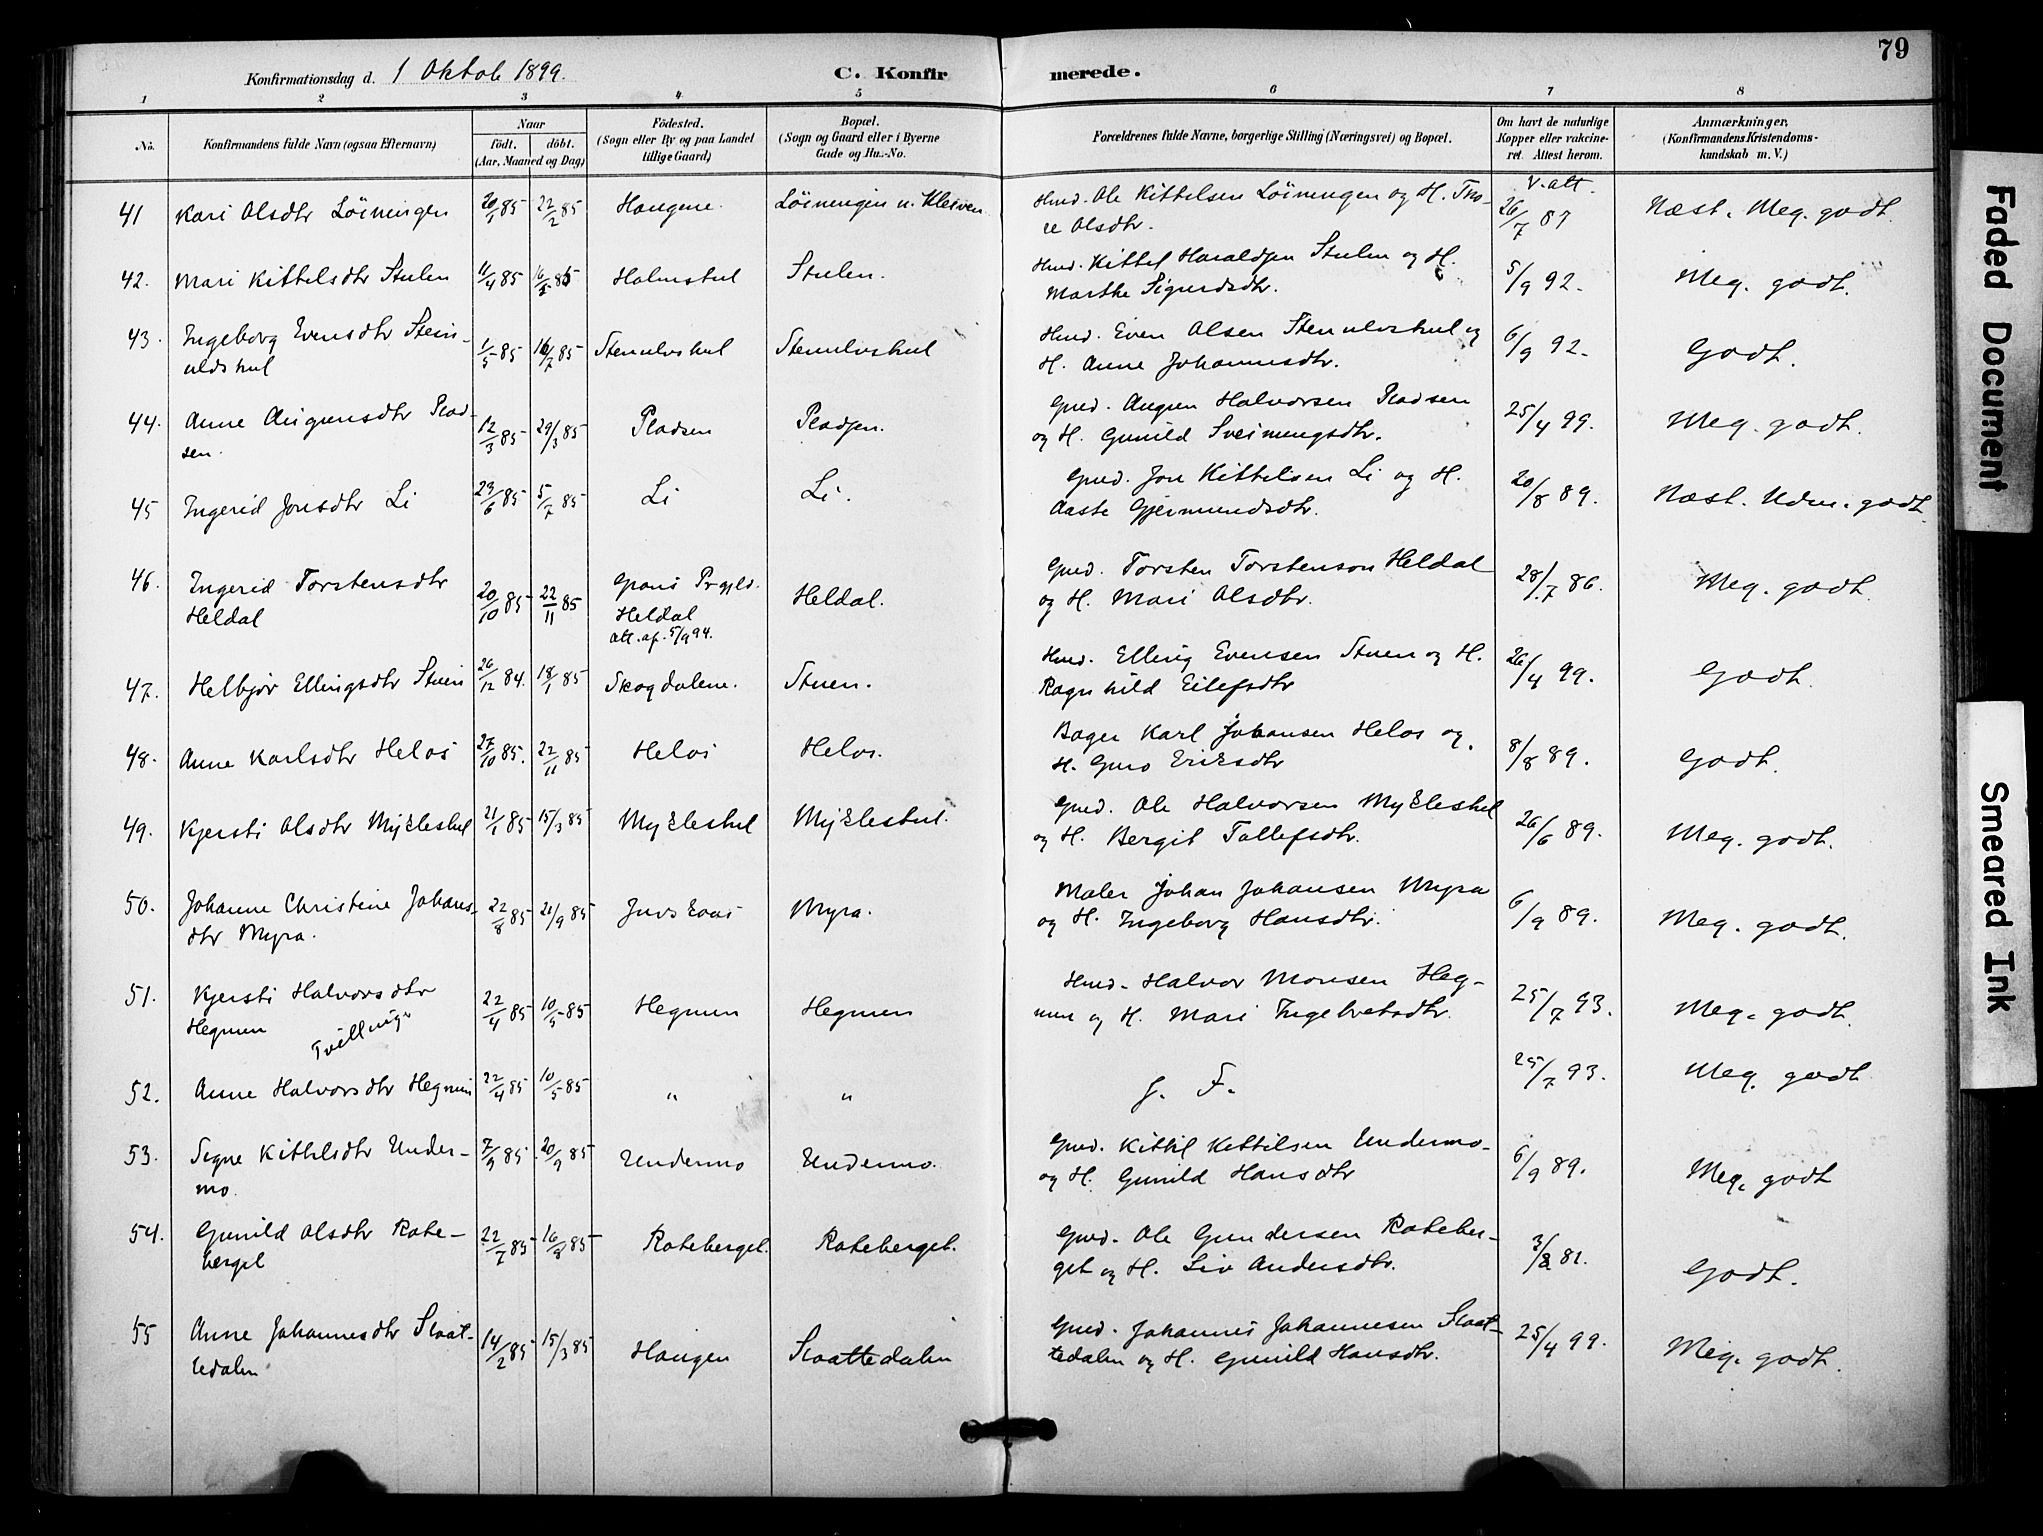 79
Konfirmationsdag d. 1 Oktob 1899.
C. Konfirmerede.
1 2 3 4 5 6 7 8
No. Konfirmandens fulde Navn (ogsaa Efternavn)
Naar
födt. döbt.
(Aar, Maaned og Dag)
Födested.
(Sogn eller By og paa Landet
tillige Gaard)
Bopæl.
(Sogn og Gaard eller i Byerne
Gade og Hu.-No.
Forældrenes fulde Navne, borgerlige Stilling (Næringsvei) og Bopæl.
Om havt de naturlige
Kopper eller vakcine-
ret. Attest herom.
Anmærkninger,
(Konfirmandens Kristendoms-
kundskab m. V.)
41 Kari Olsdtr Löiningen 20/1 85 22/2 85 Haugene. Löiningen u. Kleiven
Hmd. Ole Kittelsen Löiningen og H. Tho-
re Olsdtr.
V. att.
26/7 87 Næst. Meg. godt.
42. Mari Kittelsdtr Stulen 11/4 85 Holmstul Stulen.
Hmd. Kittel Haraldsen Stulen og H.
Marthe Sigurdsdtr.
5/9 92. Meg. godt.
43. Ingeborg Evensdtr Stein-
ulvstul 1/5 85 16/7 85 Stenulvstul Stenulvstul
Hmd. Even Olsen Stenulvstul og
H. Anne Johannesdtr.
6/9 92. Godt.
44. Anne Augunsdtr Plad-
sen. 12/3 85 29/3 85 Pladsen Pladsen.
Gmd. Augun Halvorsen Pladsen
og H. Gunild Sveinungsdtr.
25/4 99. Meg. godt.
45 Ingerid Jonsdtr Li 29/6 85 5/7 85 Li Li.
Gmd. Jon Kittelsen Li og H.
Aaste Gjermundsdtr.
20/8 89. Næst. Udm. godt.
46. Ingerid Torstensdtr
Heldal 20/10 85 22/11 85
Heldal
att. af. 5/9 94.
Heldal.
Gmd. Torsten Torstenson Heldal
og H. Mari Olsdtr.
28/7 86. Meg. godt.
47. Helbjør Ellingsdtr Stuen 26/12 84. 18/1 85 Skogdalene. Stuen.
Hmd. Elling Evensen Stuen og H.
Ragnhild Eilefsdtr
26/4 99. Godt.
48. Anne Karlsdtr Helos 27/10 85. 22/11 85 Helos Helos.
Bager Karl Johansen Helos og
H. Guro Eriksdtr
8/8 89. Godt.
49. Kjersti Olsdtr Myklestul 21/1 85 15/3 85 Myklestul Myklestul.
Gmd. Ole Halvorsen Myklestul
og H. Bergit Tollefsdtr.
26/6 89. Meg. godt.
50. Johanne Christine Johans-
dtr Myra. 22/8 85 21/9 85 Juvskaas Myra.
Maler Johan Johansen Myra
og H. Ingeborg Hansdtr.
6/9 89. Meg. godt.
51. Kjersti Halvorsdtr
Hegnum Tvillinge 22/4 85 10/5 85 Hegnum Hegnum
Hmd. Halvor Monsen Heg-
num og H. Mari Ingebretsdtr.
25/7 93. Meg. godt.
52. Anne Halvorsdtr Hegnum 22/4 85 10/5 85 " "
s. F.
25/7 93. Meg. godt
53. Signe Kittilsdtr Under-
mo. 7/9 85 20/9 85 Undermo Undermo.
Gmd. Kittil Kittilsen Undermo-
og H. Gunild Hansdtr
6/9 89. Meg. godt
54. Gunild Olsdtr Rote-
berget 22/7 85 16/8 85 Roteberget. Roteberget.
Gmd. Ole Gundersen Roteber-
get og H. Liv Andersdtr.
Godt.
55 Anne Johannesdtr Slaat-
tedalen 14/2 85 15/3 85 Haugen Slaattedalen
Gmd. Johannes Johannesen Slaat-
tedalen og H. Gunild Hansdtr.
25/4 99. Meg. godt.
Faded Document
Smeared Ink